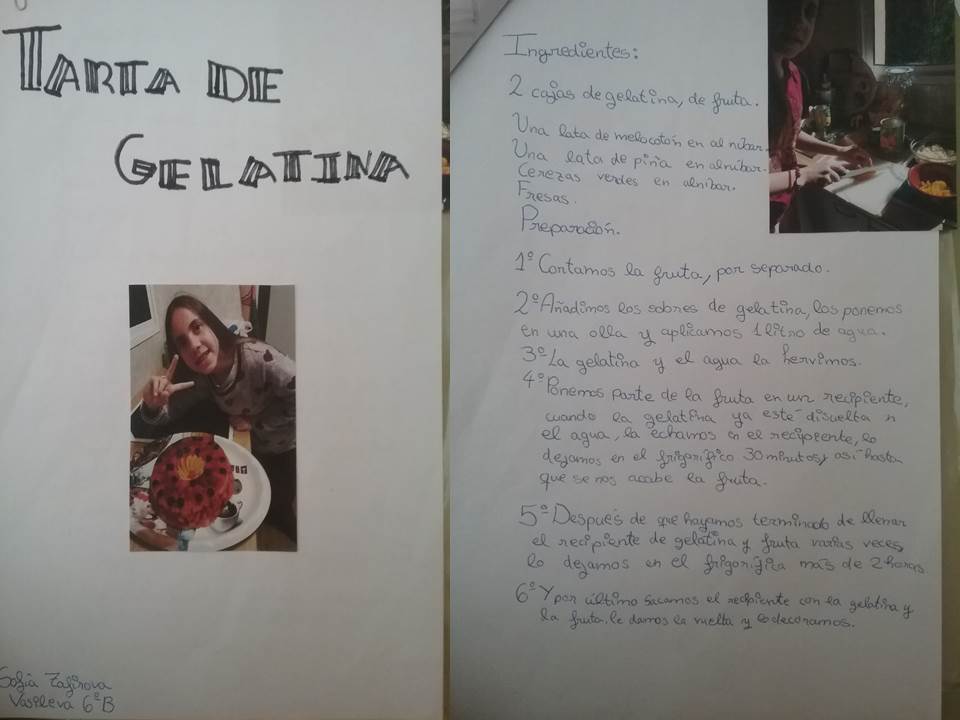 TARTA DE
GELATINA
Sofia Zafirova
Vasileva 6ºB
Ingredientes:
2 cajas de gelatina, de fruta.
Una lata de melocotón en almíbar.
Una lata de piña en almíbar.
Cerezas verdes en almíbar.
Fresas.
Preparación.
1º Cortamos la fruta, por separado.
2º Añadimos los sobres de gelatina, los ponemos
en una olla y aplicamos 1 litro de agua.
3º La gelatina y el agua la hervimos.
4º Ponemos parte de la fruta en un recipiente,
cuando la gelatina ya esté disuelta n
el agua, la echamos en el recipiente, lo
dejamos en el frigorífico 30 minutos y así hasta
que se nos acabe la fruta.
5º Después de que hayamos terminado de llenar
el recipiente de gelatina y fruta varias veces
lo dejamos en el frigorífica más de 2 horas.
6º Y por último sacamos el recipiente con la gelatina y
la fruta, le damos la vuelta y lo decoramos.